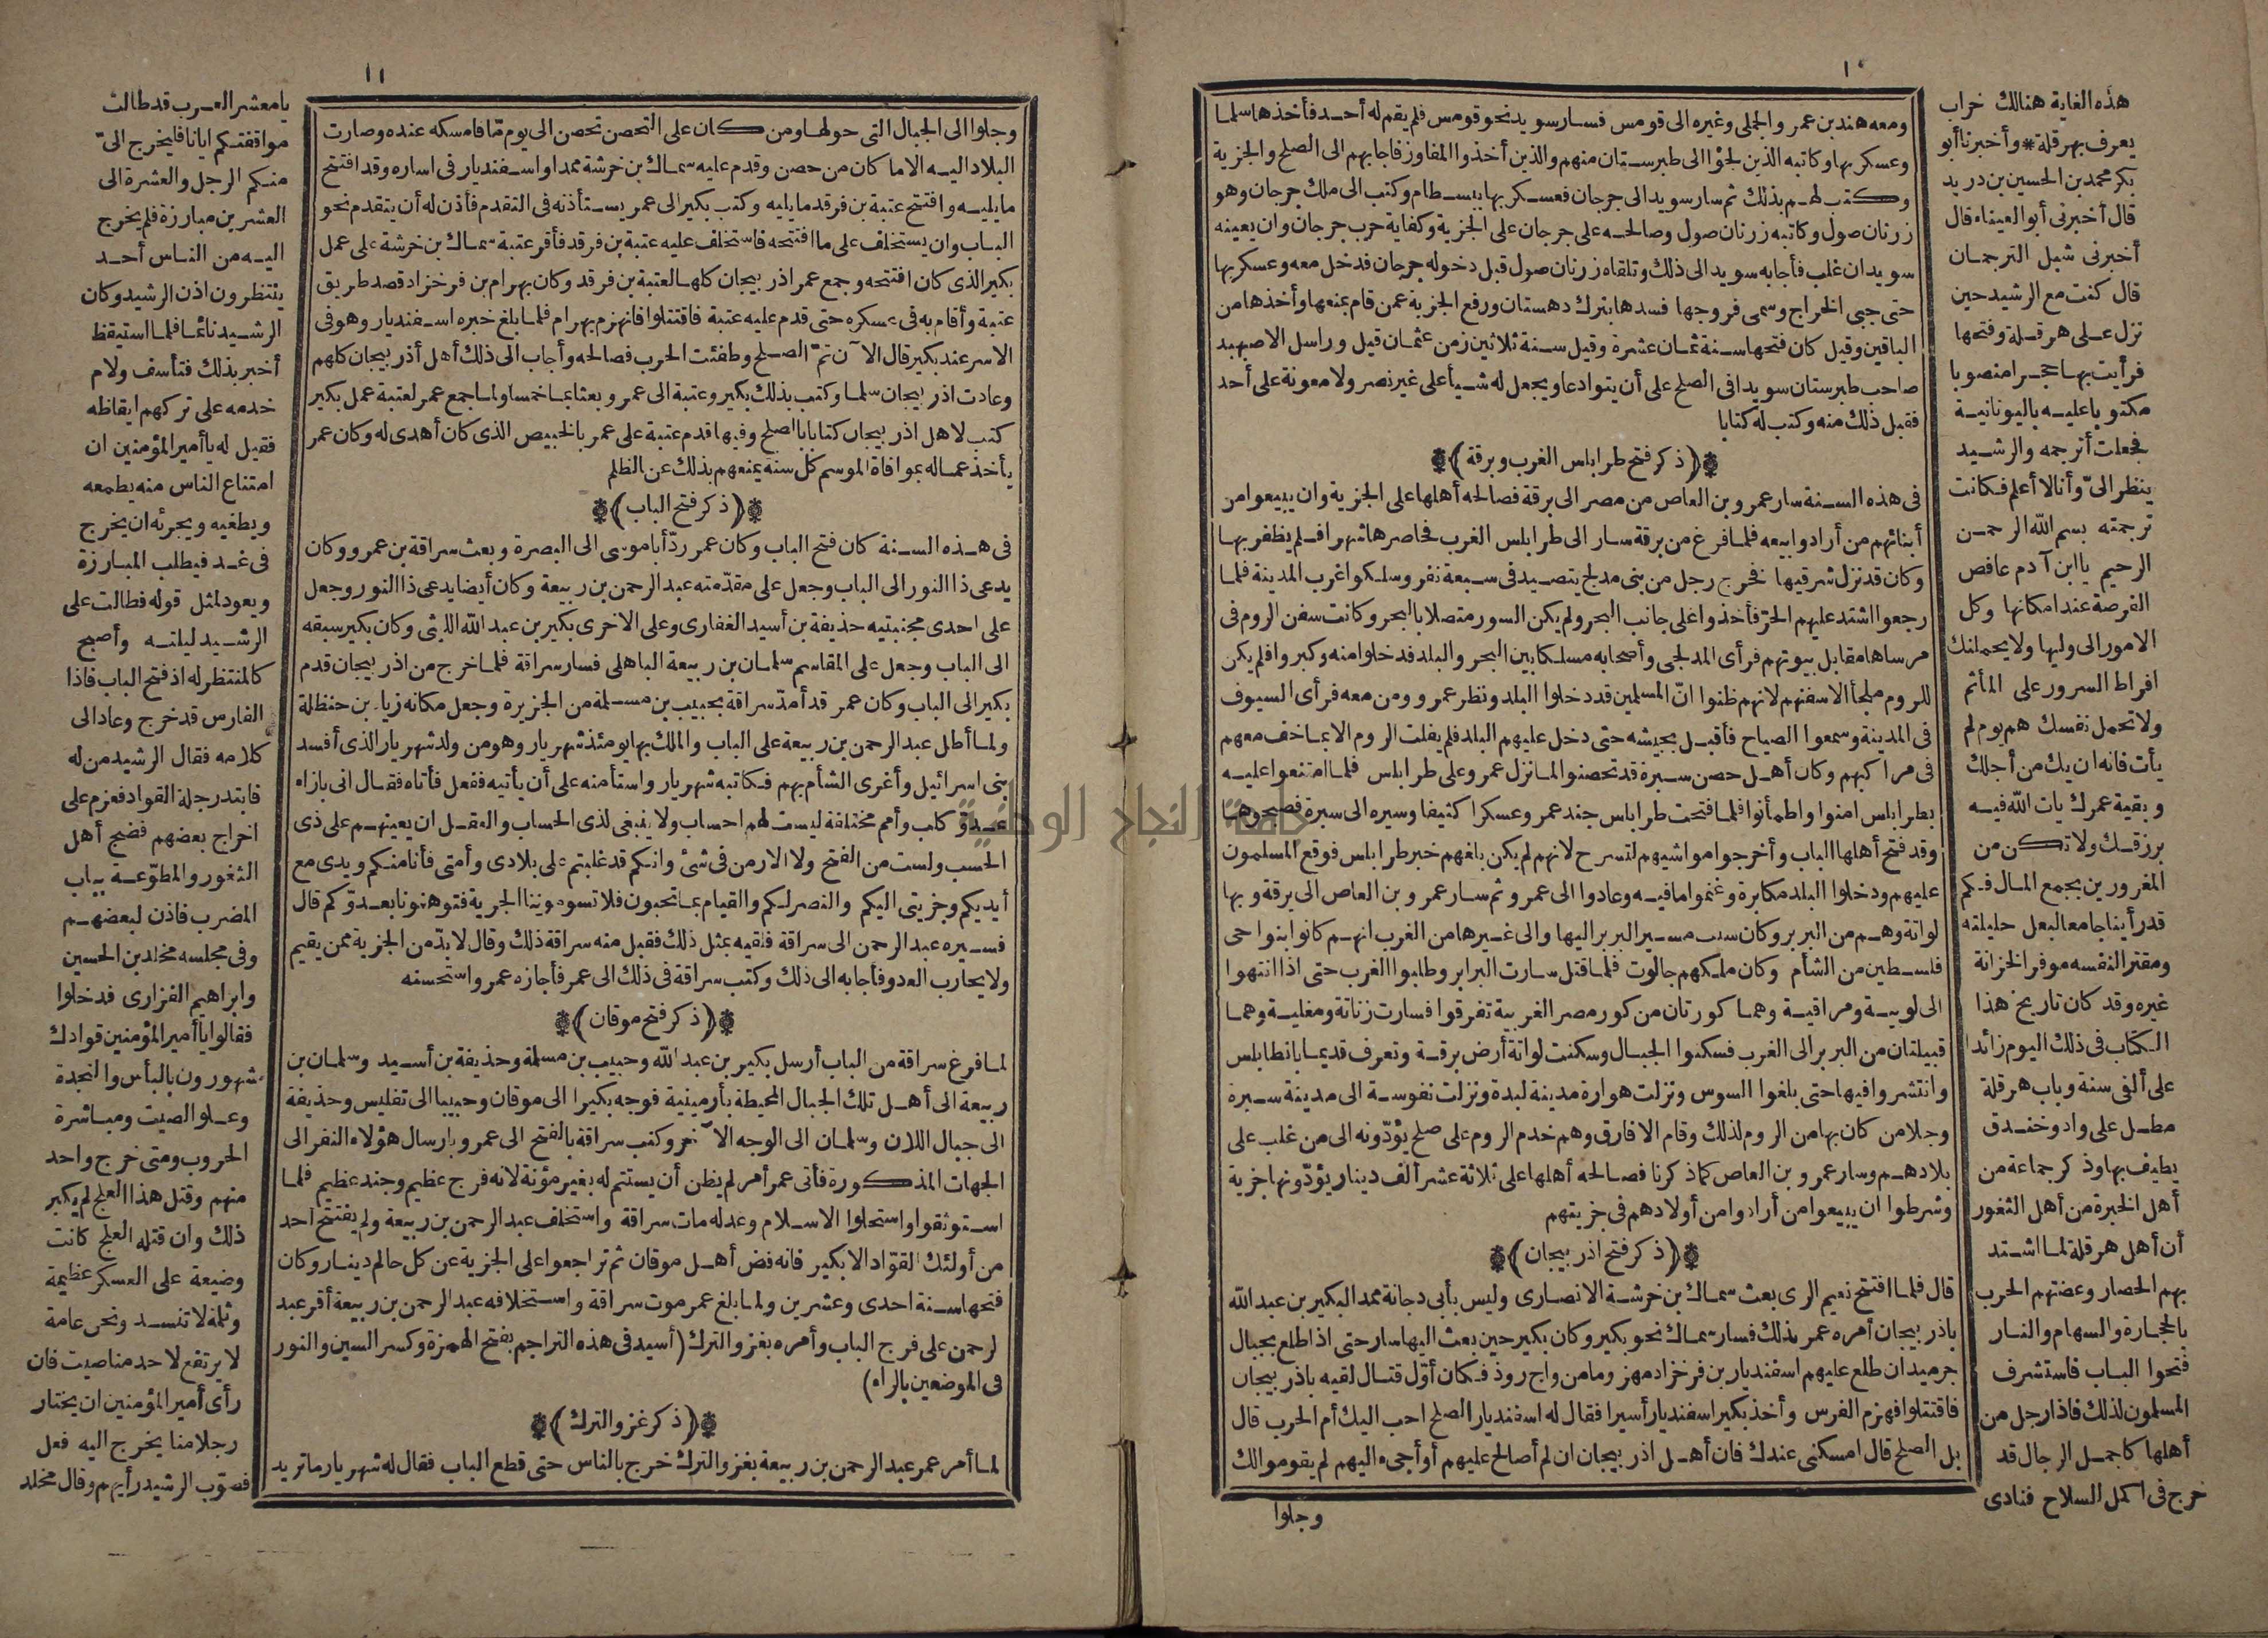 ١٠
ومعه هند بن عمر والجملي وغيره الى قومس فسار سويد نحو قومس فلم يقم له أحد فأخذها سلما
وعسكر بها وكاتبه الذين لجؤا الى طبرستان منهم والذين أخذوا المفاوز فاجابهم الى الصلح والجزية
وكتب لهم بذلك ثم سار سويد الى جرجان فعسكر بها ببسطام وكتب الى ملك جرجان وهو
زرنان صول وكاتبه زرنان صول وصالحه على جرجان على الجزية وكفاية حرب جرجان وان يعينه
سويد ان غلب فأجابه سويد الى ذلك وتلقاه زرنان صول قبل دخوله جرجان فدخل معه وعسكر بها
حتى جبى الخراج وسمى فروجها فسدها بترك دهستان ورفع الجزية عمن قام بمنعها وأخذها من
الباقين وقيل كان فتحها سنة ثمان عشرة وقيل سنة ثلاثين زمن عثمان قيل وراسل الاصبهبد
صاحب طبرستان سويدا فى الصلح على أن يتوادعا ويجعل له شيأ على غير نصر ولا معونة على أحد
فقبل ذلك منه وكتب له كتابا
﴿ذكر فتح طرابلس الغرب وبرقة﴾
فى هذه السنة سار عمرو بن العاص من مصر الى برقة فصالحه أهلها على الجزية وان يبيعوا من
أبنائهم من أرادوا بيعه فلما فرغ من برقة سار الى طرابلس الغرب فحاصرها شهرا فلم يظفر بها
وكان قد نزل شرقيها فخرج رجل من بنى مدلج يتصيد فى سبعة نفر وسلكوا غرب المدينة فلما
رجعوا اشتد عليهم الحرّ فأخذوا على جانب البحر ولم يكن السور متصلا بالبحر وكانت سفن الروم فى
مرساها مقابل بيوتهم فرأى المدلجى وأصحابه مسلكا بين البحر والبلد فدخلوا منه وكبروا فلم يكن
للروم ملجأ الا سفنهم لانهم ظنوا انّ المسلمين قد دخلوا البلد ونظر عمرو ومن معه فرأى السيوف
فى المدينة وسمعوا الصياح فأقبل بجيشه حتى دخل عليهم البلد فلم يفلت الروم الا بما خف معهم
فى مراكبهم وكان أهل حصن سبرة قد تحصنوا لما نزل عمرو على طرابلس فلما امتنعوا عليه
بطرابلس امنوا واطمأنوا فلما فتحت طرابلس جند عمرو عسكرا كثيفا وسيره الى سبرة فصبحوها
وقد فتح أهلها الباب وأخرجوا مواشيهم لتسرح لانهم لم يكن بلغهم خبر طرابلس فوقع المسلمون
عليهم ودخلوا البلد مكابرة وغنموا ما فيه وعادوا الى عمرو ثم سار عمرو بن العاص الى برقة وبها
لواتة وهم من البربر وكان سبب مسير البربر اليها والى غيرها من الغرب انهم كانوا بنواحى
فلسطين من الشأم وكان ملكهم جالوت فلما قتل سارت البرابر وطلبوا الغرب حتى اذا انتهوا
الى لوبية ومراقية وهما كورتان من كور مصر الغربية تفرقوا فسارت زناتة ومغيلة وهما
قبيلتان من البربر الى الغرب فسكنوا الجبال وسكنت لواتة أرض برقة وتعرف قديما بانطابلس
وانتشروا فيها حتى بلغوا السوس ونزلت هوارة مدينة لبدة ونزلت نفوسة الى مدينة سبرة
وجلا من كان بها من الروم لذلك وقام الافارق وهم خدم الروم على صلح يؤدّونه الى من غلب على
بلادهم وسار عمرو بن العاص كما ذكرنا فصالحه أهلها على ثلاثة عشر ألف دينار يؤدّونها جزية
وشرطوا ان يبيعوا من أرادوا من أولادهم فى جزيتهم
﴿ذكر فتح اذربيجان﴾
قال فلما افتتح نعيم الرى بعث سماك بن خرشة الانصارى وليس بأبى دجانة ممدا لبكير بن عبد الله
باذربيجان أمره عمر بذلك فسار سماك نحو بكير وكان بكير حين بعث اليها سار حتى اذا طلع بجبال
جرميدان طلع عليهم اسفنديار بن فرخزاد مهزوما من واج روذ فكان أوّل قتال لقيه باذربيجان
فاقتتلوا فهزم الفرس وأخذ بكير اسفنديار أسيرا فقال له اسفنديار الصلح احب اليك أم الحرب قال
بل الصلح قال امسكنى عندك فان أهل اذربيجان ان لم أصالح عليهم أو أجىء اليهم لم يقوموا لك
وجلوا
هذه الغاية هنالك خراب
يعرف بهرقلة * وأخبرنا أبو
بكر محمد بن الحسين بن دريد
قال أخبرنى أبو العيناء قال
أخبرنى شبل الترجمان
قال كنت مع الرشيد حين
نزل على هرقلة وفتحها
فرأيت بها حجرا منصوبا
مكتوبا عليه باليونانية
فجعلت أترجمه والرشيد
ينظر الىّ وأنا لا أعلم فكانت
ترجمته بسم الله الرحمن
الرحيم يا ابن آدم عافص
الفرصة عند امكانها وكل
الامور الى وليها ولا يحملنك
افراط السرور على المأثم
ولا تحمل نفسك هم يوم لم
يأت فانه ان يك من أجلك
وبقية عمرك يات الله فيه
برزقك ولا تكن من
المغرورين بجمع المال فكم
قد رأينا جامعا لبعل حليلته
ومقترا لنفسه موفرا لخزانة
غيره وقد كان تاريخ هذا
الكتاب فى ذلك اليوم زائدا
على ألفى سنة وباب هرقلة
مطل على واد وخندق
يطيف بها وذكر جماعة من
أهل الخبرة من أهل الثغور
أن أهل هرقلة لما اشتد
بهم الحصار وعضتهم الحرب
بالحجارة والسهام والنار
فتحوا الباب فاستشرف
المسلمون لذلك فاذا رجل من
أهلها كاجمل الرجال قد
خرج فى اكمل السلاح فنادى
١١
وجلوا الى الجبال التى حولها ومن كان على التحصن تحصن الى يوم مّا فامسكه عنده وصارت
البلاد اليه الا ما كان من حصن وقدم عليه سماك بن خرشة ممدا واسفنديار فى اساره وقد افتتح
ما يليه وافتتح عتبة بن فرقد ما يليه وكتب بكير الى عمر يستأذنه فى التقدم فأذن له أن يتقدم نحو
الباب وان يستخلف على ما افتتحه فاستخلف عليه عتبة بن فرقد فأقر عتبة سماك بن خرشة على عمل
بكير الذى كان افتتحه وجمع عمر اذربيجان كلها لعتبة بن فرقد وكان بهرام بن فرخزاد قصد طريق
عتبة وأقام به فى عسكره حتى قدم عليه عتبة فاقتتلوا فانهزم بهرام فلما بلغ خبره اسفنديار وهو فى
الاسر عند بكير قال الآن تمّ الصلح وطفئت الحرب فصالحه وأجاب الى ذلك أهل أذربيجان كلهم
وعادت اذربيجان سلما وكتب بذلك بكير وعتبة الى عمر وبعثا بما خمسا ولما جمع عمر لعتبة عمل بكير
كتب لاهل اذربيجان كتابا بالصلح وفيها قدم عتبة على عمر بالخبيص الذى كان أهدى له وكان عمر
يأخذ عماله بموافاة الموسم كل سنة يمنعهم بذلك عن الظلم
﴿ذكر فتح الباب﴾
فى هذه السنة كان فتح الباب وكان عمر ردّ أبا موسى الى البصرة وبعث سراقة بن عمرو وكان
يدعى ذا النور الى الباب وجعل على مقدّمته عبد الرحمن بن ربيعة وكان أيضا يدعى ذا النور وجعل
على احدى مجنبتيه حذيفة بن أسيد الغفارى وعلى الاخرى بكير بن عبد الله الليثى وكان بكير سبقه
الى الباب وجعل على المقاسم سلمان بن ربيعة الباهلى فسار سراقة فلما خرج من اذربيجان قدم
بكير الى الباب وكان عمر قد أمدّ سراقة بحبيب بن مسلمة من الجزيرة وجعل مكانه زياد بن حنظلة
ولما أطل عبد الرحمن بن ربيعة على الباب والملك بها يومئذ شهريار وهو من ولد شهريار الذى أفسد
بنى اسرائيل وأغرى الشأم بهم فكاتبه شهريار واستأمنه على أن يأتيه ففعل فأتاه فقال انى بازاء
عدوّ كلب وأمم مختلفة ليست لهم احساب ولا ينبغى لذى الحساب والعقل ان يعينهم على ذى
الحسب ولست من الفتح ولا الارمن فى شئ وانكم قد غلبتم على بلادى وأمتى فأنا منكم ويدى مع
أيديكم وجزيتى اليكم والنصر لكم والقيام بما تحبون فلا تسوموننا الجزية فتوهنونا بعدوّكم قال
فسيره عبد الرحمن الى سراقة فلقيه بمثل ذلك فقبل منه سراقة ذلك وقال لا بدّ من الجزية ممن يقيم
ولا يحارب العدو فأجابه الى ذلك وكتب سراقة فى ذلك الى عمر فأجازه عمر واستحسنه
﴿ذكر فتح موقان﴾
لما فرغ سراقة من الباب أرسل بكير بن عبد الله وحبيب بن مسلمة وحذيفة بن أسيد وسلمان بن
ربيعة الى أهل تلك الجبال المحيطة بأرمينية فوجه بكيرا الى موقان وحبيبا الى تفليس وحذيفة
الى جبال اللان وسلمان الى الوجه الآخر وكتب سراقة بالفتح الى عمر وبارسال هؤلاء النفر الى
الجهات المذكورة فأتى عمر أمر لم يظن أن يستتم له بغير مؤنة لانه فرج عظيم وجند عظيم فلما
استوثقوا واستحلوا الاسلام وعدله مات سراقة واستخلف عبد الرحمن بن ربيعة ولم يفتتح احد
من أولئك القوّاد الا بكير فانه فض أهل موقان ثم تراجعوا على الجزية عن كل حالم دينار وكان
فتحها سنة احدى وعشرين ولما بلغ عمر موت سراقة واستخلافه عبد الرحمن بن ربيعة أقر عبد
الرحمن على فرج الباب وأمره بغزو الترك (أسيد فى هذه التراجم بفتح الهمزة وكسر السين والنور
فى الموضعين بالراء)
﴿ذكر غزو الترك﴾
لما أمر عمر عبد الرحمن بن ربيعة بغزو الترك خرج بالناس حتى قطع الباب فقال له شهريار ما تريد
يا معشر العرب قد طالت
مواقفتكم ايانا فليخرج الىّ
منكم الرجل والعشرة الى
العشرين مبارزة فلم يخرج
اليه من الناس أحد
ينتظرون اذن الرشيد وكان
الرشيد نائما فلما استيقظ
أخبر بذلك فتأسف ولام
خدمه على تركهم ايقاظه
فقيل له يا أمير المؤمنين ان
امتناع الناس منه يطمعه
ويطغيه ويجرئه ان يخرج
فى غد فيطلب المبارزة
ويعود لمثل قوله فطالت على
الرشيد ليلته وأصبح
كالمنتظر له اذ فتح الباب فاذا
الفارس قد خرج وعاد الى
كلامه فقال الرشيد من له
فابتدر جلة القواد فعزم على
اخراج بعضهم فضج أهل
الثغور والمطوّعة بباب
المضرب فاذن لبعضهم
وفى مجلسه مخلد بن الحسين
وابراهيم الفزارى فدخلوا
فقالوا يا أمير المؤمنين قوادك
مشهورون بالبأس والنجدة
وعلو الصيت ومباشرة
الحروب ومتى خرج واحد
منهم وقتل هذا العلج لم يكبر
ذلك وان قتله العلج كانت
وضيعة على العسكر عظيمة
وثلمة لا تنسد ونحن عامة
لا يرتفع لاحد منا صيت فان
رأى أمير المؤمنين ان يختار
رجلا منا يخرج اليه فعل
فصوّب الرشيد رأيهم وقال مخلد
جامعة النجاح الوطنية